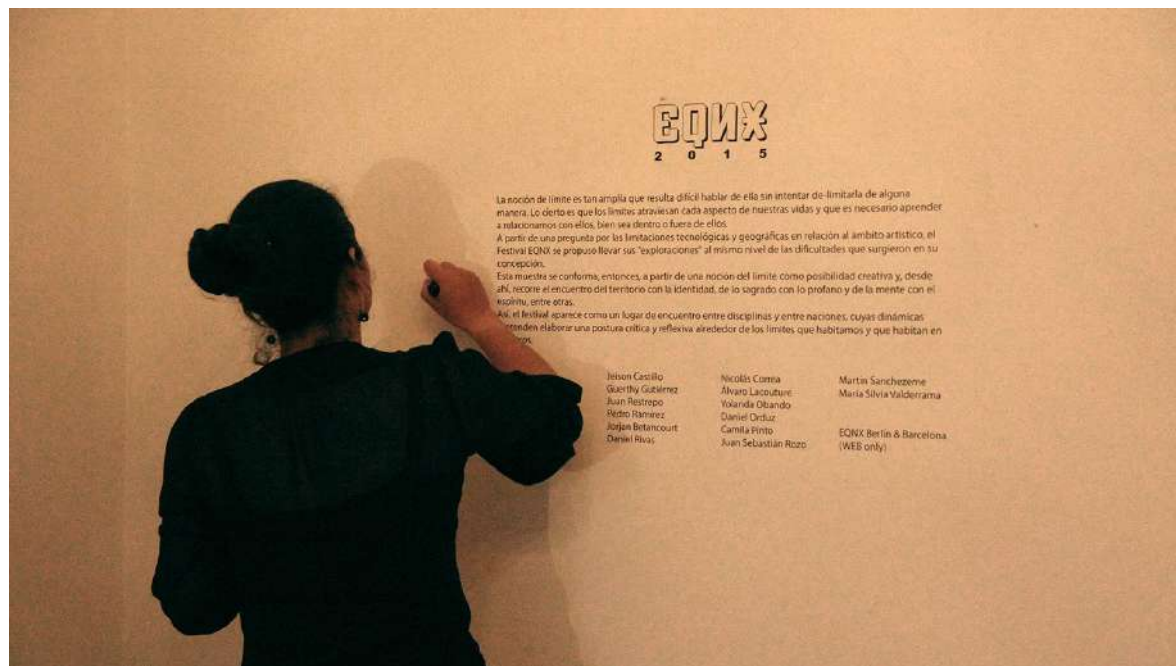 EQNX
2015
La noción de límite es tan amplia que resulta difícil hablar de ella sin intentar de-limitarla de alguna
manera. Lo cierto es que los límites atraviesan cada aspecto de nuestras vidas y que es necesario aprender
a relacionarnos con ellos, bien sea dentro o fuera de ellos.
A partir de una pregunta por las limitaciones tecnológicas y geográficas en relación al ámbito artístico, el
Festival EQNX se propuso llevar sus "exploraciones" al mismo nivel de las dificultades que surgieron en su
concepción.
Esta muestra se conforma, entonces, a partir de una noción del límite como posibilidad creativa y, desde
ahí, recorre el encuentro del territorio con la identidad, de lo sagrado con lo profano y de la mente con el
espíritu, entre otras.
Así, el festival aparece como un lugar de encuentro entre disciplinas y entre naciones, cuyas dinámicas
elaborar una postura crítica y reflexiva alrededor de los límites que habitamos y que habitan en
Jeison Castillo
Guerthy Gutiérrez
Juan Restrepo
Pedro Ramírez
Jorjan Betancourt
Daniel Rivas
Nicolás Correa
Álvaro Lacouture
Yolanda Obando
Daniel Orduz
Camila Pinto
Juan Sebastián Rozo
Martin Sanchezeme
María Silvia Valderrama
EQNX Berlin & Barcelona
(WEB only)